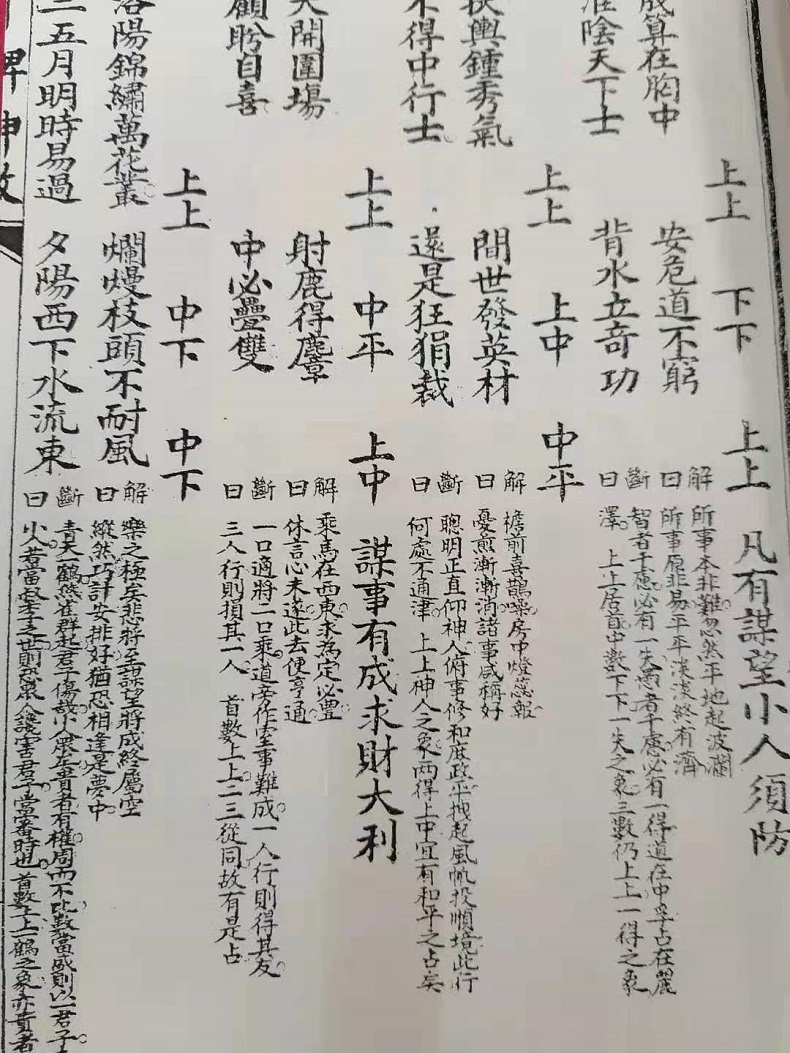 上上　下下　上上　凡有謀望小人須防
成算在胸中　安危道不窮
淮陰天下士　背水立奇功
解曰
所事本非難忽然平地起波瀾
所事原非易平平淡淡終有濟
斷曰
智者千慮必有一失愚者千慮必有一得道在中孚占在麗
澤　上上居首中數下下一失之象三數仍上上一得之象
上上　上中　中平
扶輿鍾秀氣　間世發英材
不得中行士　還是狂狷裁
解曰
檐前喜鵲噪房中燈蕊報
憂煎漸漸消諸事咸稱好
斷曰
聰明正直仰神人俯事修和庶政平拽起風帆投順境此行
何處不通津　上上神人之象兩得上中宜有和平之占矣
上上　中平　上中　謀事有成求財大利
大開圍場　射鹿得麞
顧盼自喜　中必疊雙
解曰
乘馬在西東求為定必豐
休言心未遂此去便亨通
斷曰
一口適將二口乘道旁作室事難成一人行則得其友
三人行則損其一人　首數上上二三從同故有是占
上上　中下　中下
洛陽錦繡萬花叢　爛熳枝頭不耐風
三五月明時易過　夕陽西下水流東
解曰
樂之極矣悲將至謀望將成終屬空
縱然巧計安排好猶恐相逢是夢中
斷曰
青天一鶴燕雀群起君子傷哉小人眾矣貴者有權周而不比數當盛則以一君子
小人若當叔季之世則恐眾人讒害君子當審時也　首數上上一鶴之象亦貴者
牌神數